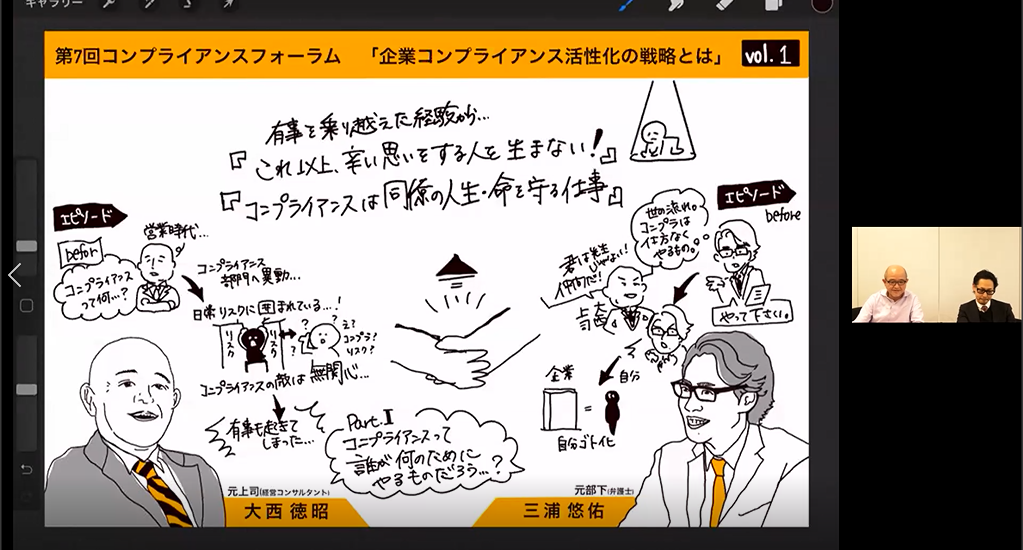 ギャラリー
第7回コンプライアンスフォーラム 「企業コンプライアンス活性化の戦略とは」 vol.1
有事を乗り越えた経験から...
『これ以上、辛い思いをする人を生まない!』
『コンプライアンスは同僚の人生・命を守る仕事』
エピソード
befor
営業時代...
コンプライアンス
って何...?
コンプライアンス
部門へ異動...
日常リスクに囲まれている...!
リスク
リスク
?
?
?
え?
コンプラ?
リスク?
コンプライアンスの敵は無関心...
有事も起きて
しまった...
Part.Ⅱ
コンプライアンスって
誰が何のために
やるものだろう...?
エピソード
before
世の流れ。
コンプラは
仕方なく
やるもの。
やって下さい。
君は先生
じゃない!
仲間だ!
上司
企業
=
自分
自分ゴト化
元上司(経営コンサルタント)
大西 徳昭
元部下(弁護士)
三浦 悠佑